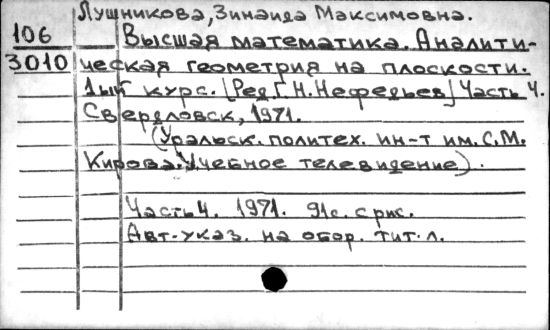 Лушникова, Зинаида Максимовна.
106 Высшая математика. Аналити-
3010 ческая геометрия на плоскости.
1ый курс. [Ред. Г.Н. Нефедьев] Часть 4.
Свердловск, 1971.
(Уральск. политех. ин-т им. С.М.
Кирова. Учебное телевидение).
Часть 4. 1971. 91с. с рис.
Авт. указ. на обор. тит. л.